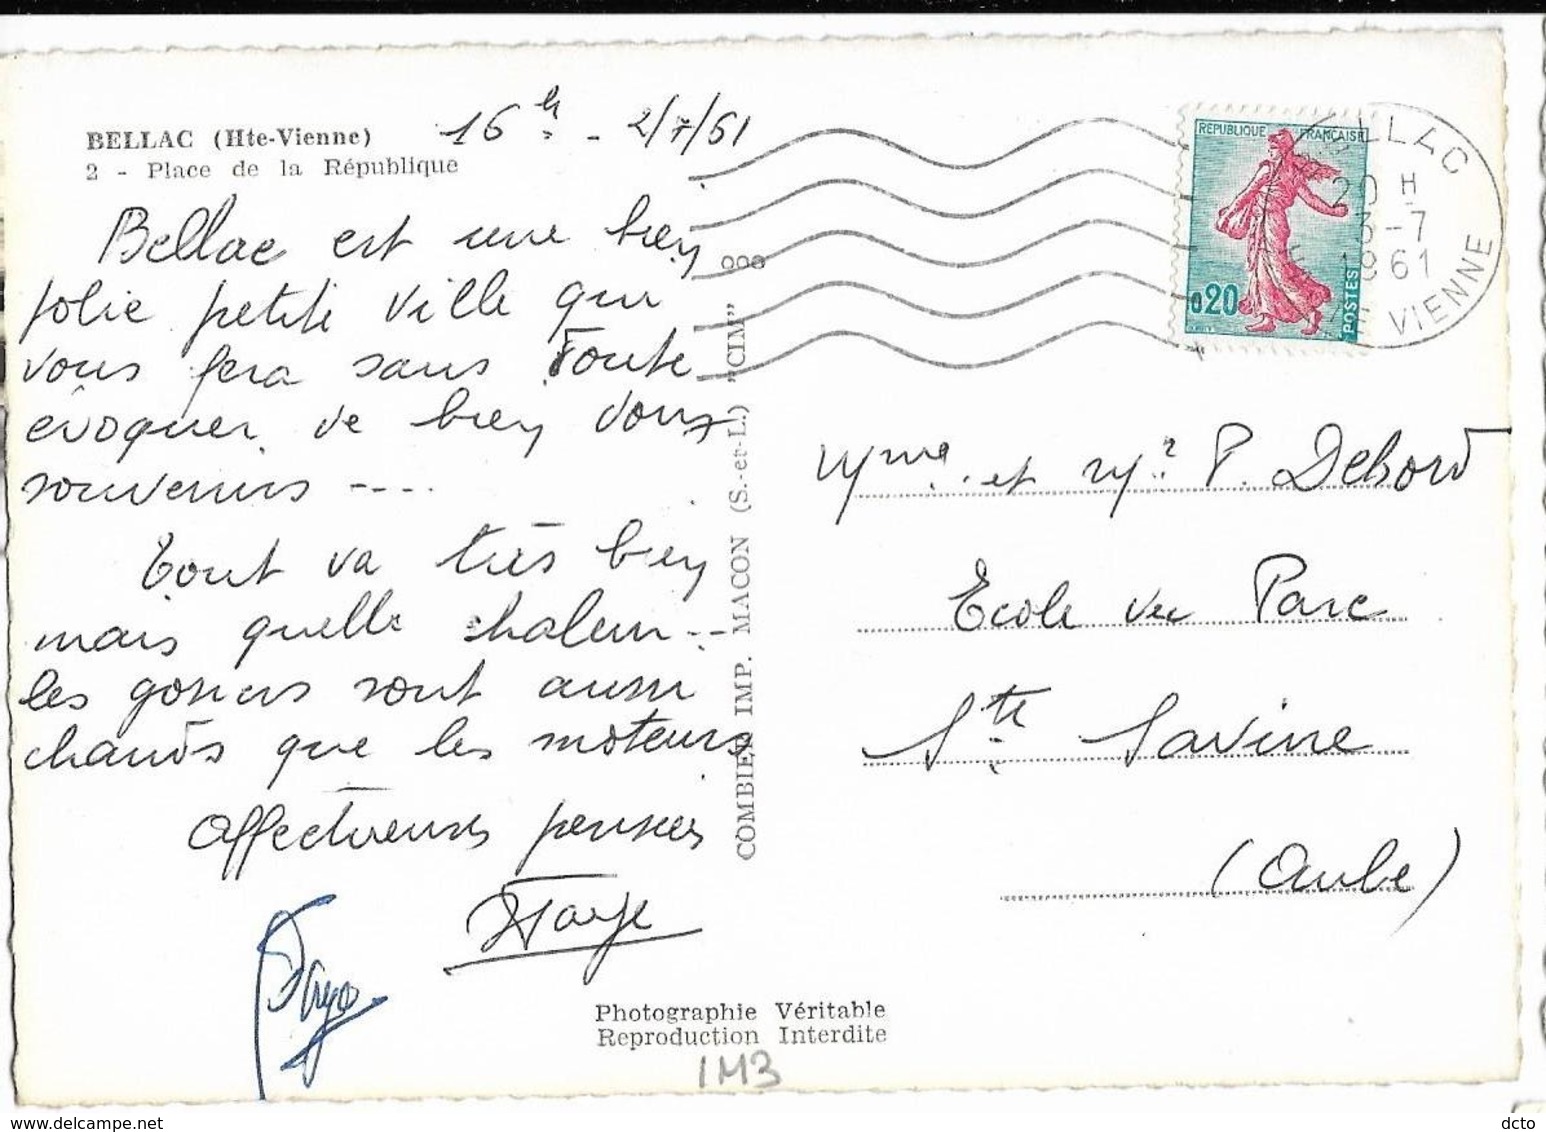 BELLAC (Hte-Vienne)
2 - Place de la République
16 h - 2/7/61
Bellac est une bien
jolie petite ville qui
vous fera sans doute
évoquer de bien doux
souvenirs ----
Tout va très bien
mais quelle chaleur --
les gosiers sont aussi
chauds que les moteurs
Affectueuses pensées
COMBIER IMP. MACON (S.-et-L.) "CIM"
REPUBLIQUE FRANÇAISE
0,20
POSTES
BELLAC
20 H
3-7
1961
HTE VIENNE
Mme et Mr P. Debord
Ecole du Parc
Ste Savine
(Aube)
Photographie Véritable
Reproduction Interdite
1M3
dcto